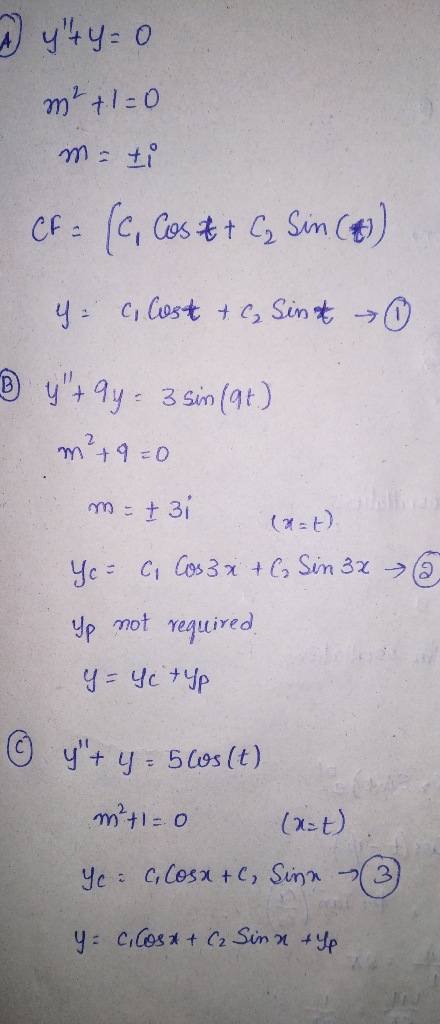 A y"+y = 0
m² + 1 = 0
m = ±i
CF = (C₁ Cos t + C₂ Sin (t))
y = C₁ Cost + C₂ Sin t → ①
B y"+ 9y = 3 sin(9t)
m² + 9 = 0
m = ± 3i (x=t)
yc = C₁ Cos3x + C₂ Sin 3x → ②
yp not required
y = yc + yp
C y"+ y = 5 Cos(t)
m²+1 = 0 (x=t)
yc = C₁ Cosx + C₂ Sinx → ③
y = C₁ Cosx + C₂ Sin x + yp